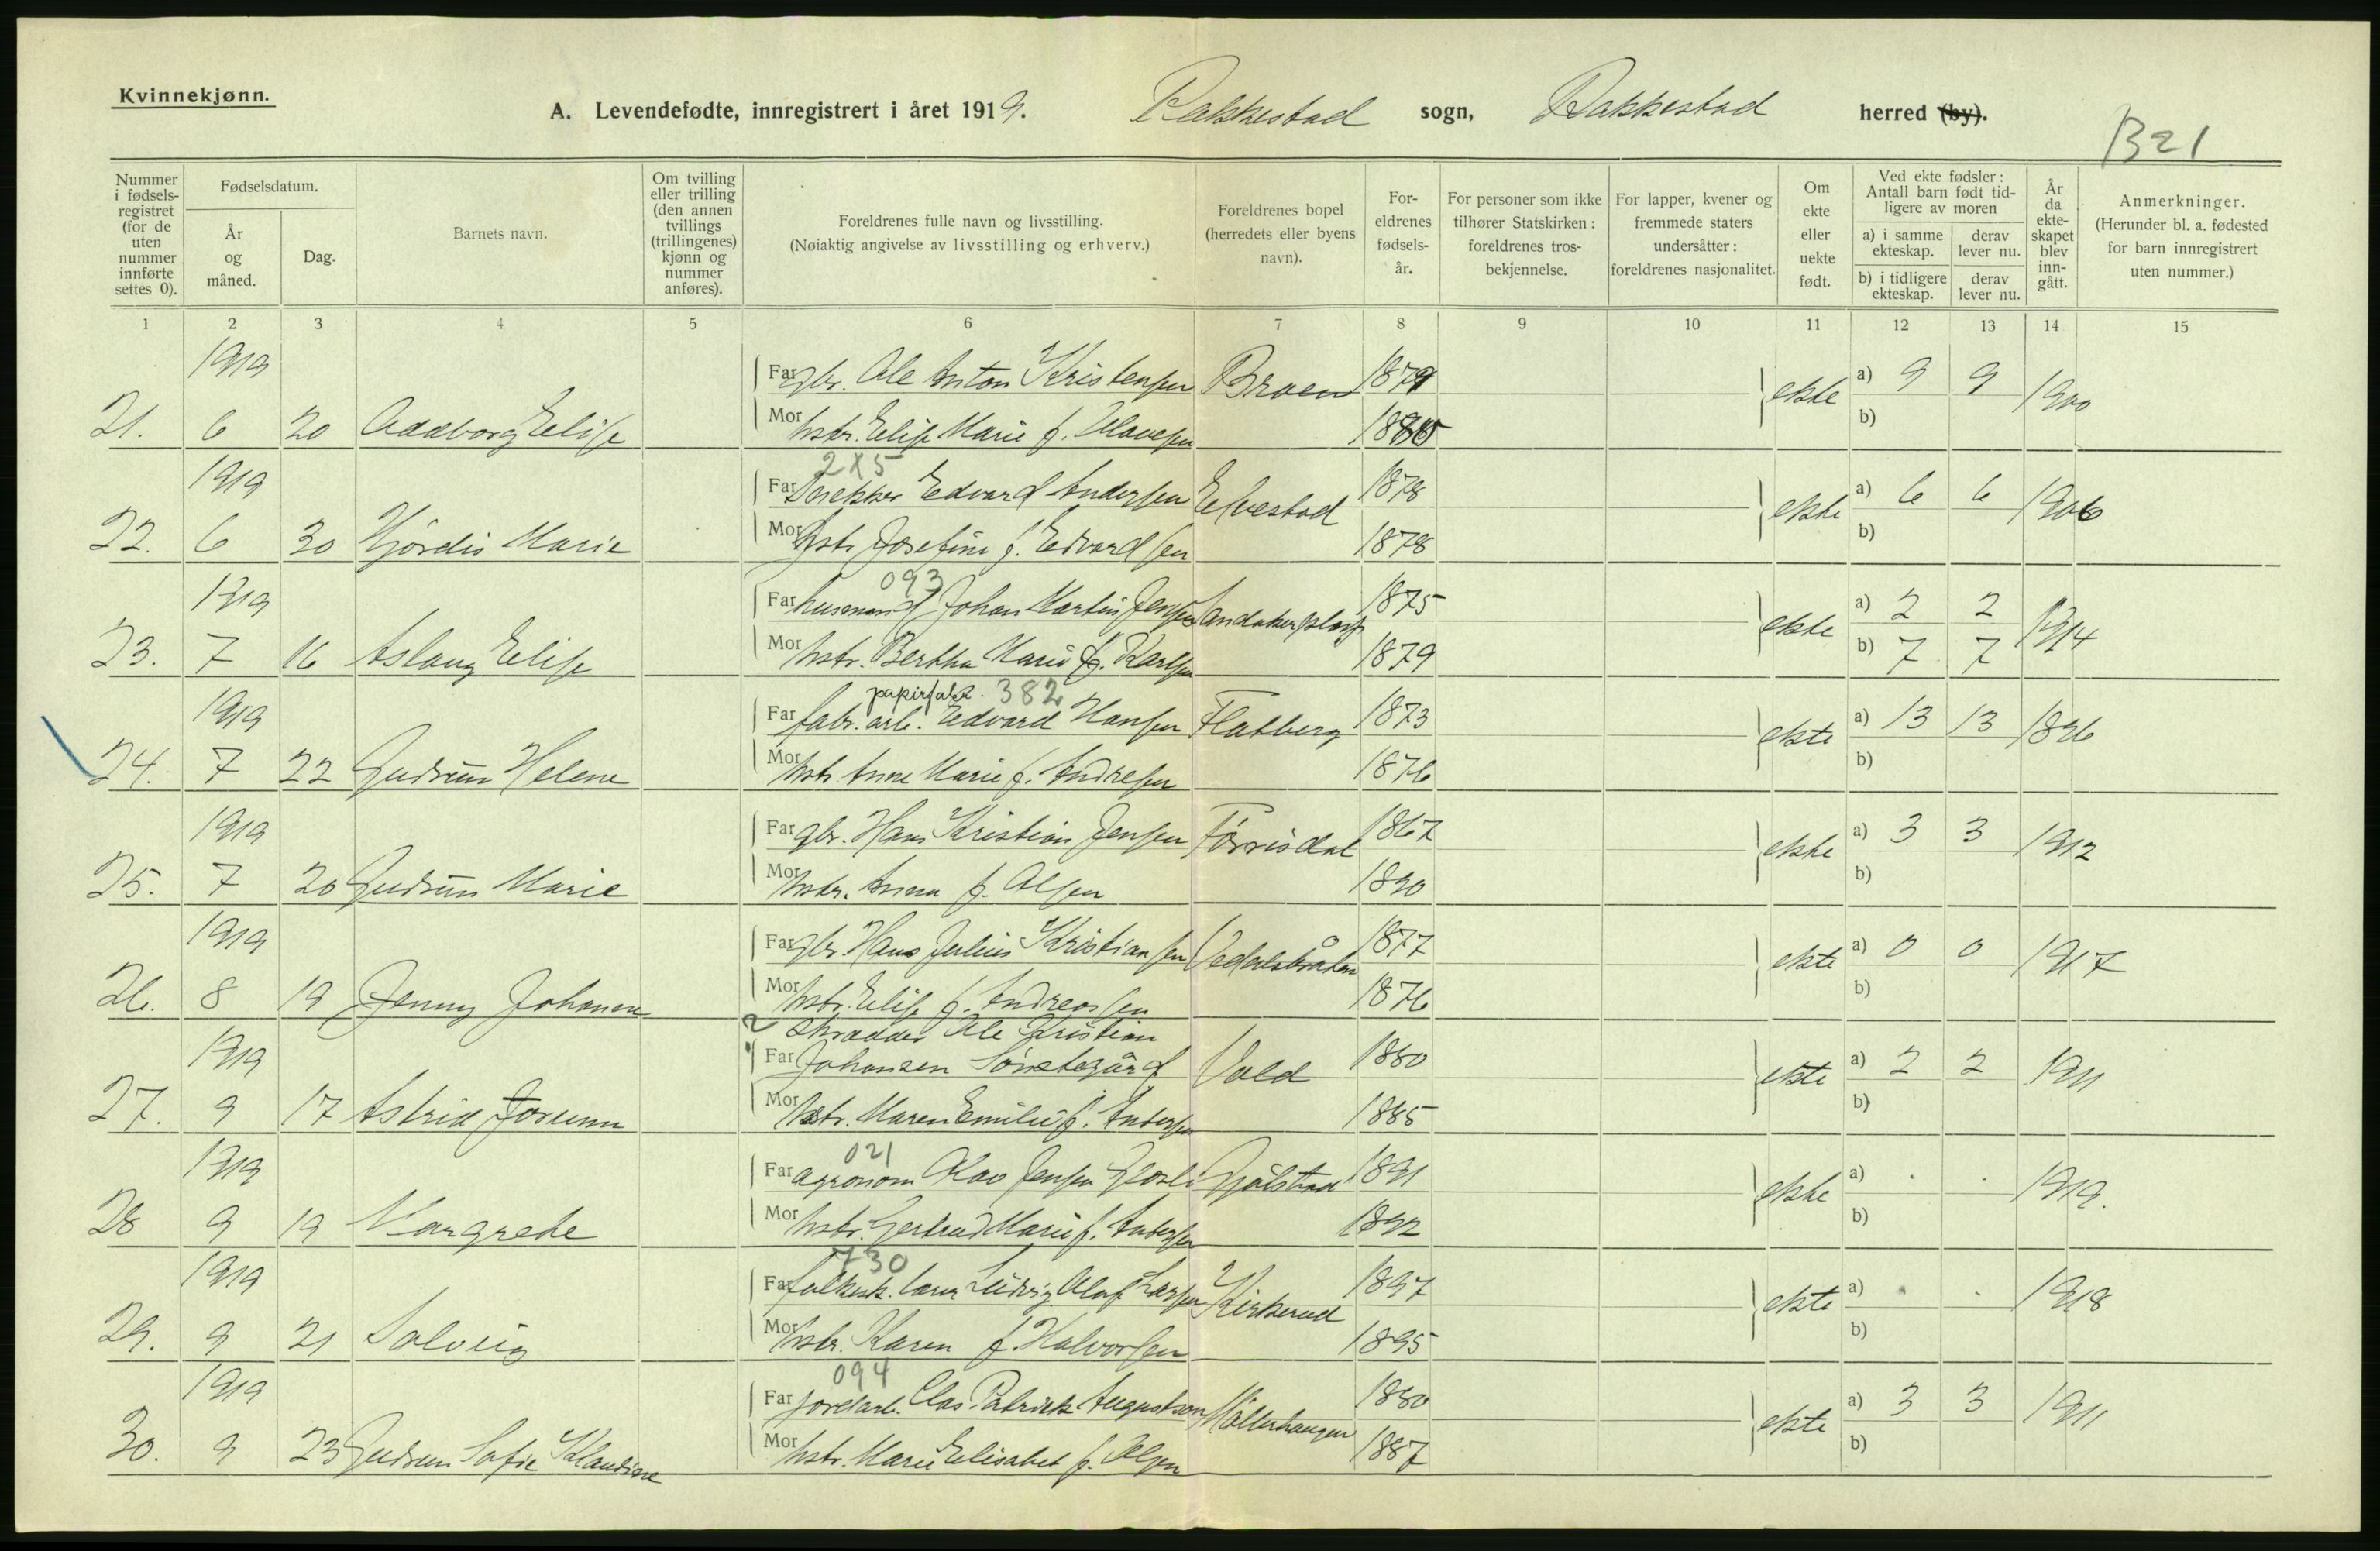 Kvinnekjønn.
A. Levendefødte, innregistrert i året 1919. Rakkestad sogn, Rakkestad herred (by).
1321
Nummer i fødselsregistret (for de uten nummer innførte settes 0).
Fødselsdatum.
År og måned.
Dag.
Barnets navn.
Om tvilling eller trilling (den annen tvillings (trillingenes) kjønn og nummer anføres).
Foreldrenes fulle navn og livsstilling.
(Nøiaktig angivelse av livsstilling og erhverv.)
Foreldrenes bopel (herredets eller byens navn).
For-eldrenes fødsels-år.
For personer som ikke tilhører Statskirken: foreldrenes tros-bekjennelse.
For lapper, kvener og fremmede staters undersåtter: foreldrenes nasjonalitet.
Om ekte eller uekte født.
Ved ekte fødsler: Antall barn født tid-ligere av moren
a) i samme ekteskap. derav lever nu.
b) i tidligere ekteskap. derav lever nu.
År da ekte-skapet blev inn-gått.
Anmerkninger.
(Herunder bl. a. fødested for barn innregistrert uten nummer.)
1 2 3 4 5 6 7 8 9 10 11 12 13 14 15
1919 Far gbr. Ole Anton Kristensen Braen 1879 ekte a) 9 9 1900
21. 6 20 Aadborg Elise Mor hstr. Elise Marie f. Olavesen 1880 b)
2x5
1919 Far Snekker Edvard Andersen Elvestad 1878 ekte a) 6 6 1906
22. 6 30 Hjørdis Marie Mor hstr Josefine f. Edvardsen 1878 b)
093
1919 Far husmand Johan Martin Jensen Sandakerplads 1875 ekte a) 2 2 1914
23. 7 16 Aslaug Elise Mor hstr. Bertha Marie f. Karlsen 1879 b) 7 7
papirfabr. 382
1919 Far fabr. arb. Edvard Hansen Flatberg 1873 ekte a) 13 13 1896
24. 7 22 Gudrun Helene Mor hstr Anne Marie f. Andresen 1876 b)
1919 Far gbr. Hans Kristian Jensen Tørrisdal 1867 ekte a) 3 3 1912
25. 7 20 Gudrun Marie Mor hstr. Anna f. Olsen 1890 b)
1919 Far gbr. Hans Julius Kristiansen 1877 ekte a) 0 0 1917
26. 8 19 Jenny Johanne Mor hstr. Elise f. Andreassen 1876 b)
? skrædder Ole Kristian
1919 Far Johansen Sønstegård Vold 1880 ekte a) 2 2 1911
27. 9 17 Astrid Jorunn Mor hstr. Maren Emilie f. Andersen 1885 b)
021
1919 Far agronom Olav Jensen Gjølstad 1891 ekte a) . . 1919.
28 9 19 Margrete Mor hstr. Gertrud Marie f. Andersen 1892 b)
730
1919 Far folkesk. lærer Ludvig Olaf Larsen Kirkerud 1897 ekte a) . . 1918
29. 9 21 Solveig Mor hstr. Karen f. Halvorsen 1895 b)
094
1919 Far jordarb. Clas Patrick Augustson Møllerhaugen 1880 ekte a) 3 3 1911
30. 9 23 Gudrun Sofie Klaudine Mor hstr. Marie Elisabet f. Olsen 1887 b)